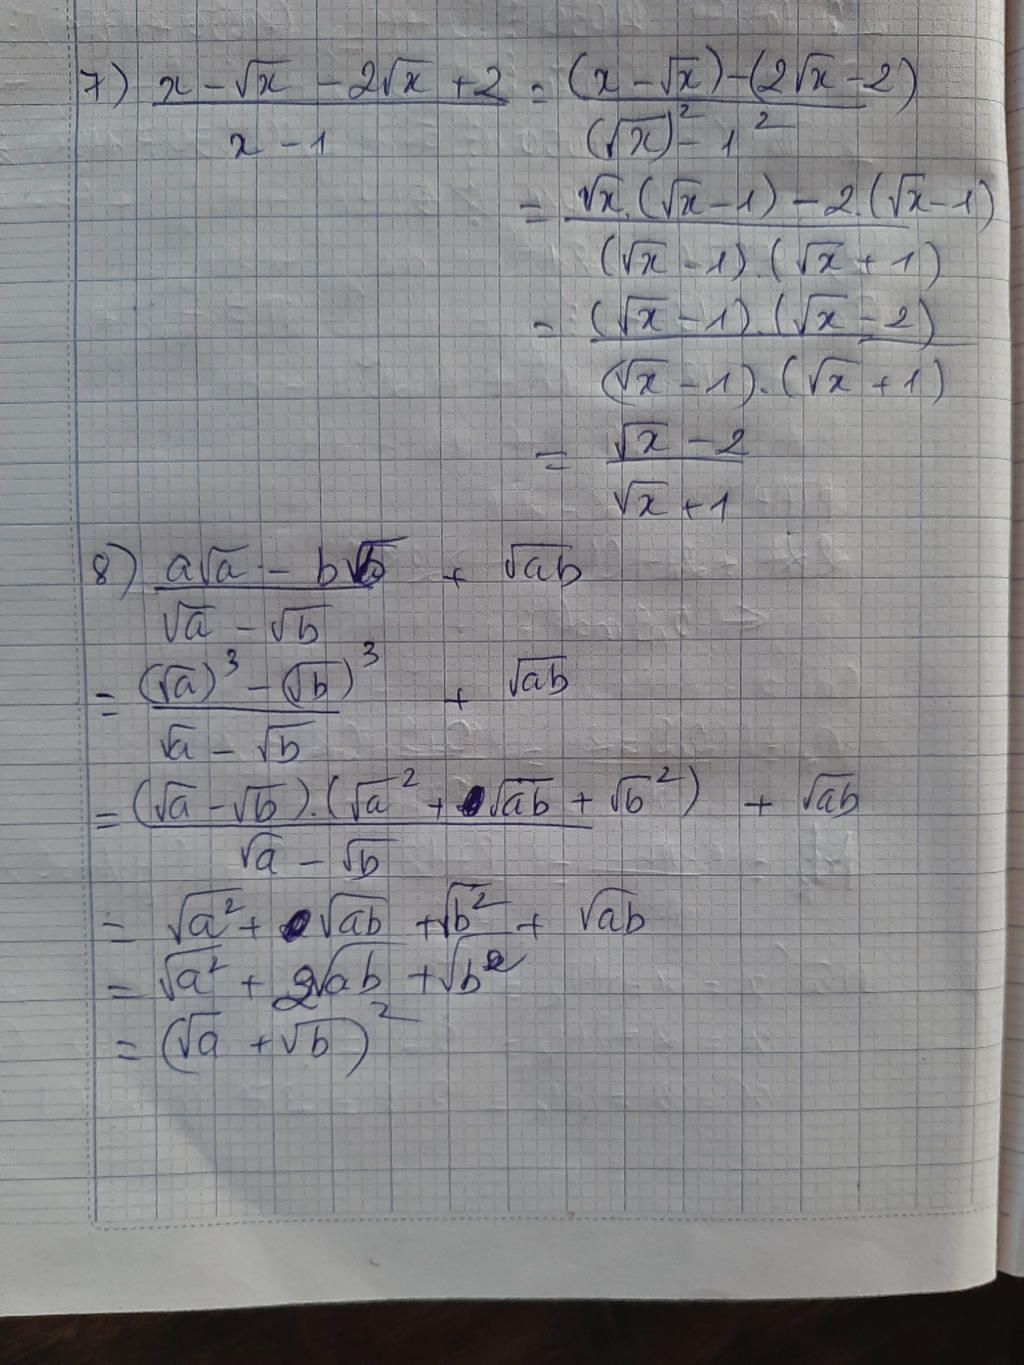 7) x - √x - 2√x + 2 / x - 1 = (x - √x) - (2√x - 2) / (√x)² - 1²
= √x.(√x - 1) - 2.(√x - 1) / (√x - 1).(√x + 1)
= (√x - 1).(√x - 2) / (√x - 1).(√x + 1)
= √x - 2 / √x + 1
8) a√a - b√b / √a - √b + √ab
= (√a)³ - (√b)³ / √a - √b + √ab
= (√a - √b).(√a² + √ab + √b²) / √a - √b + √ab
= √a² + √ab + √b² + √ab
= √a² + 2√ab + √b²
= (√a + √b)²